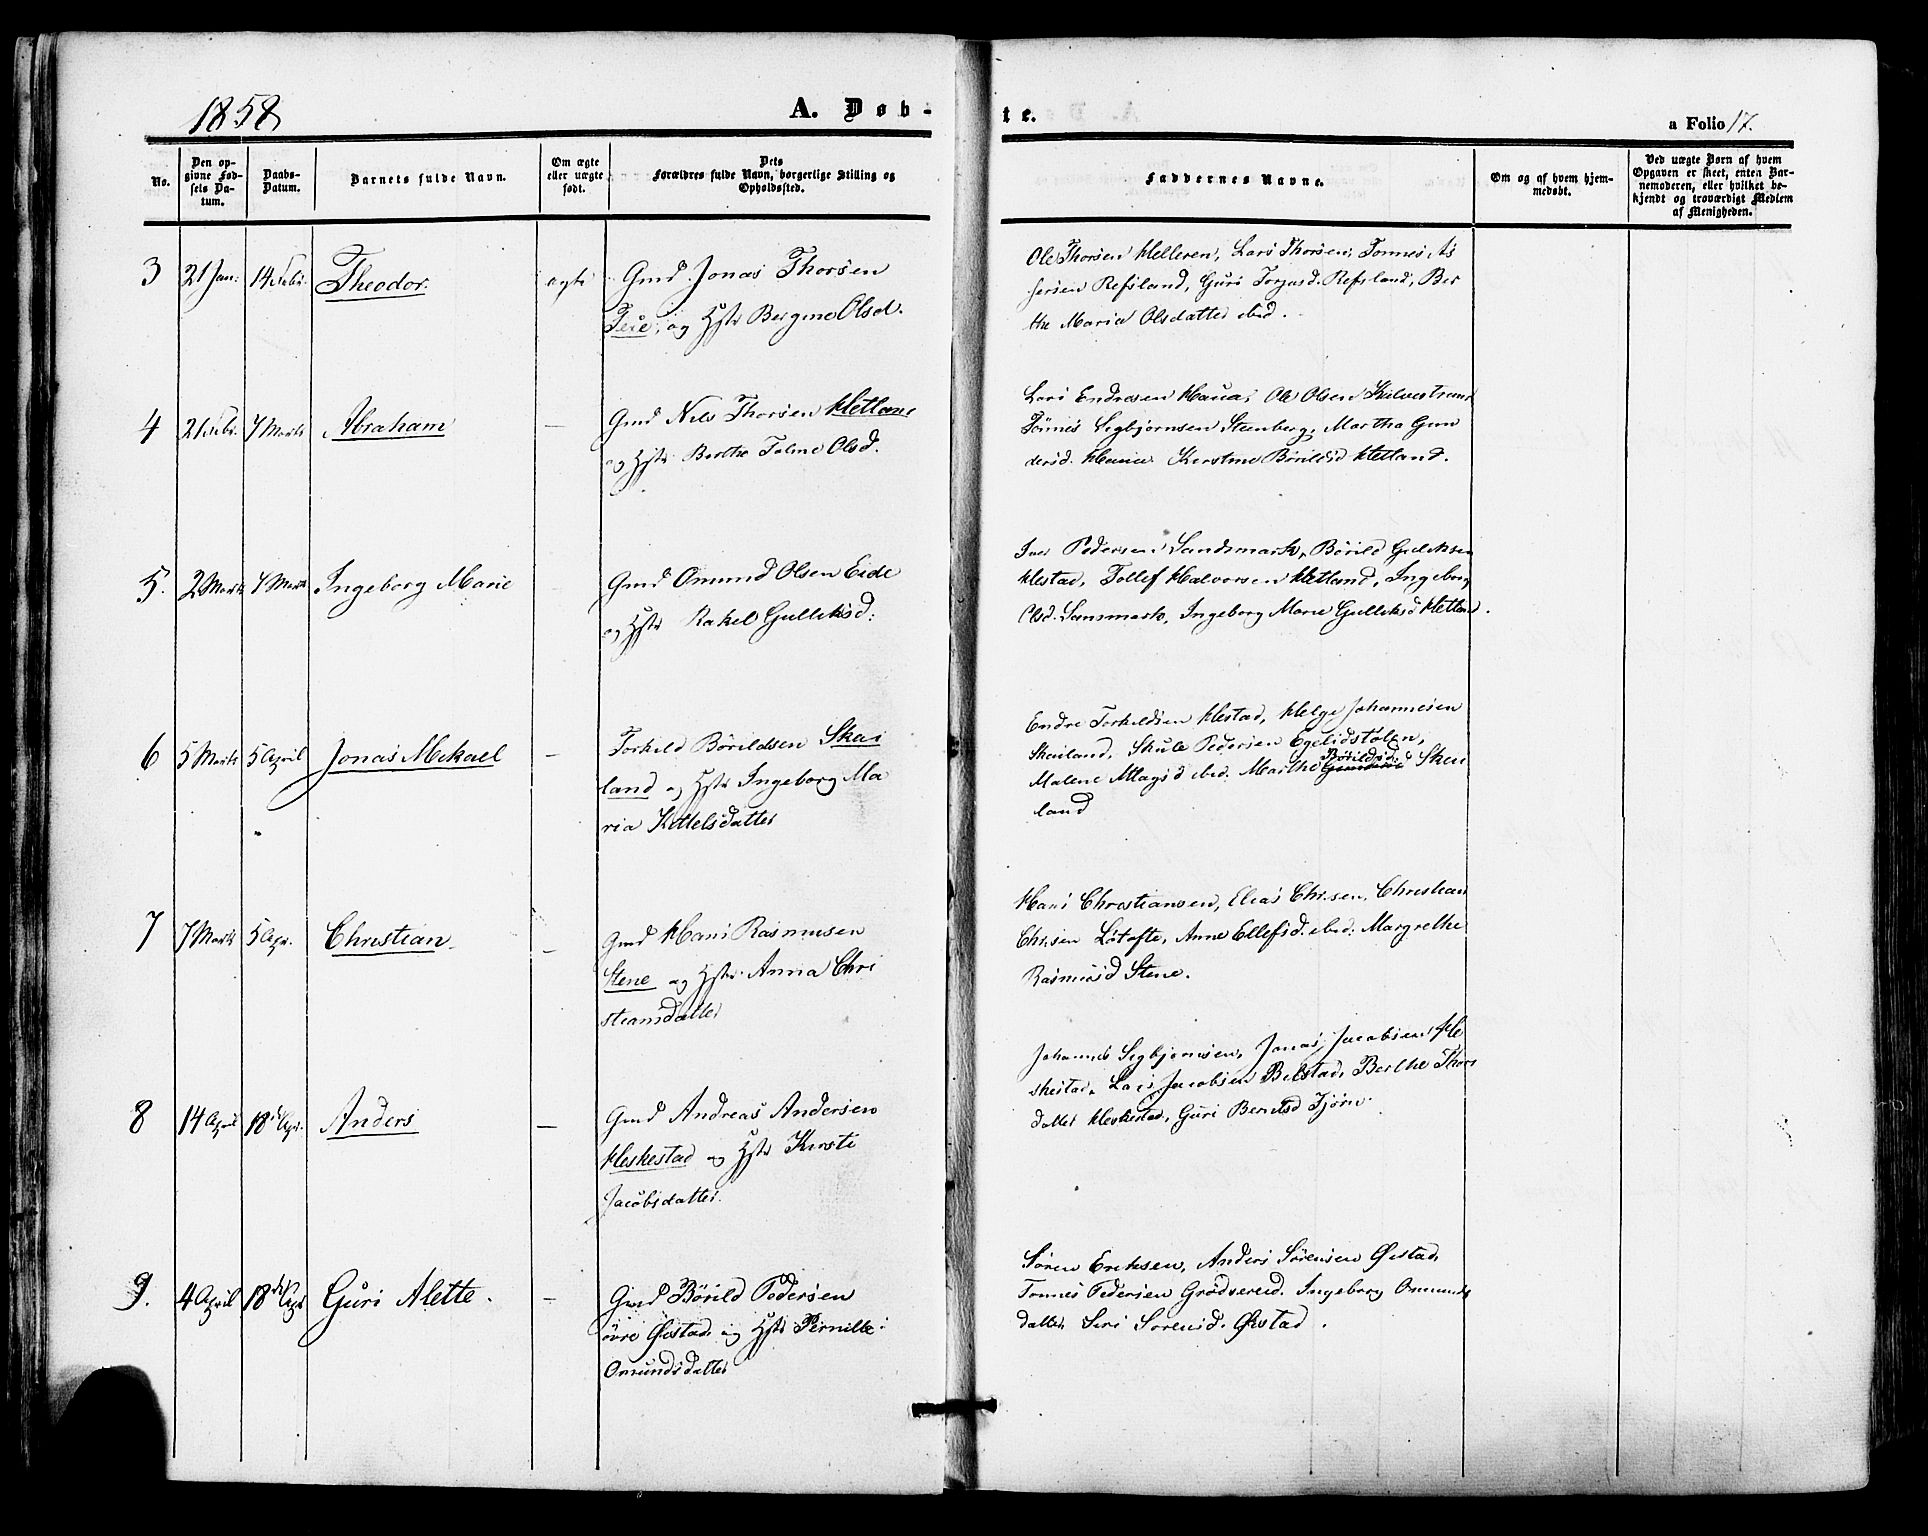 1858
A. Døb-
te.
a Folio 17.
No.
Den op-
givne Fød-
sels Da-
tum.
Daabs-
Datum.
Barnets fulde Navn.
Om ægte
eller uægte
født.
Dets
Forældres fulde Navn, borgerlige Stilling og
Opholdssted.
Faddernes Navne.
Om og af hvem hjem-
medøbt.
Ved uægte Børn af hvem
Opgaven er skeet, enten Bar-
nemoderen, eller hvilket be-
kjendt og troværdigt Medlem
af Menigheden.
3 21 Jan: 14 Febr. Theodor. ægte
Gmd Jonas Thorsen
Teie, og Hstr Bergine Olsd.
Ole Thorsen Helleren, Lars Thorsen, Tønnes As
sersen Refsland, Guri Torgusd. Refsland, Ber
the Maria Olsdatter ibid.
4 21 Febr. 7 Marts Abraham —
Gmd Nils Thorsen Hetland
og Hstr Berthe Toline Olsd.
Lars Endresen Haua, Ole Olsen
Tønnes Segbjørnsen Steenberg, Martha Gun
dersd. Haua Kirstine Børildsd Hetland.
5. 2 Marts 7 Marts Ingeborg Marie
Gmd Omund Olsen Eide
og Hstr Rakel Gulleksd:
Iver Pedersen Sandsmark, Børild Guleksen
Hestad, Tollef Halvorsen Hetland, Ingeborg
Olsd. Sansmark, Ingeborg Marie Gulleksd Hetland.
6 5 Marts 5 April Jonas Mikael —
Torkild Børildsen Skai
land og Hstr Ingeborg Ma
ria Kittelsdatter
Endre Torkildsen Hestad, Helge Johannesen
Skeiland, Skule Pedersen Egelidstølen,
Malene Atlagsd ibid. Marthe Børildsd: Skei
land
7 7 Marts 5 Apr. Christian. —
Gmd Hans Rasmusen
Stene og Hstr. Anna Chri
stiansdatter
Hans Christiansen, Elias Chr.sen, Christian
Chr.sen Løtofte, Anne Ellefsd. ibid. Margrethe
Rasmusd Stene.
8 14 April 18de Apr. Anders —
Gmd Andreas Andersen
Heskestad og Hstr Kirsti
Jacobsdatter.
Johannes Segbjørnsen, Jonas Jacobsen He
skestad, Lars Jacobsen Bilstad, Berthe Thors
datter Heskestad, Guri Berntsd Tjørn.
9. 4 April 18de Apr Guri Alette. —
Gmd Børild Pedersen
øvre Øistad, og Hstr Pernille
Omundsdatter
Søren Eriksen, Anders Sørensen Øistad,
Tønnes Pedersen Grødsereid. Ingeborg Omunds
datter, Siri Sørensd. Øistad.